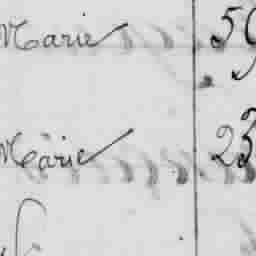 Marie 59
Marie 23